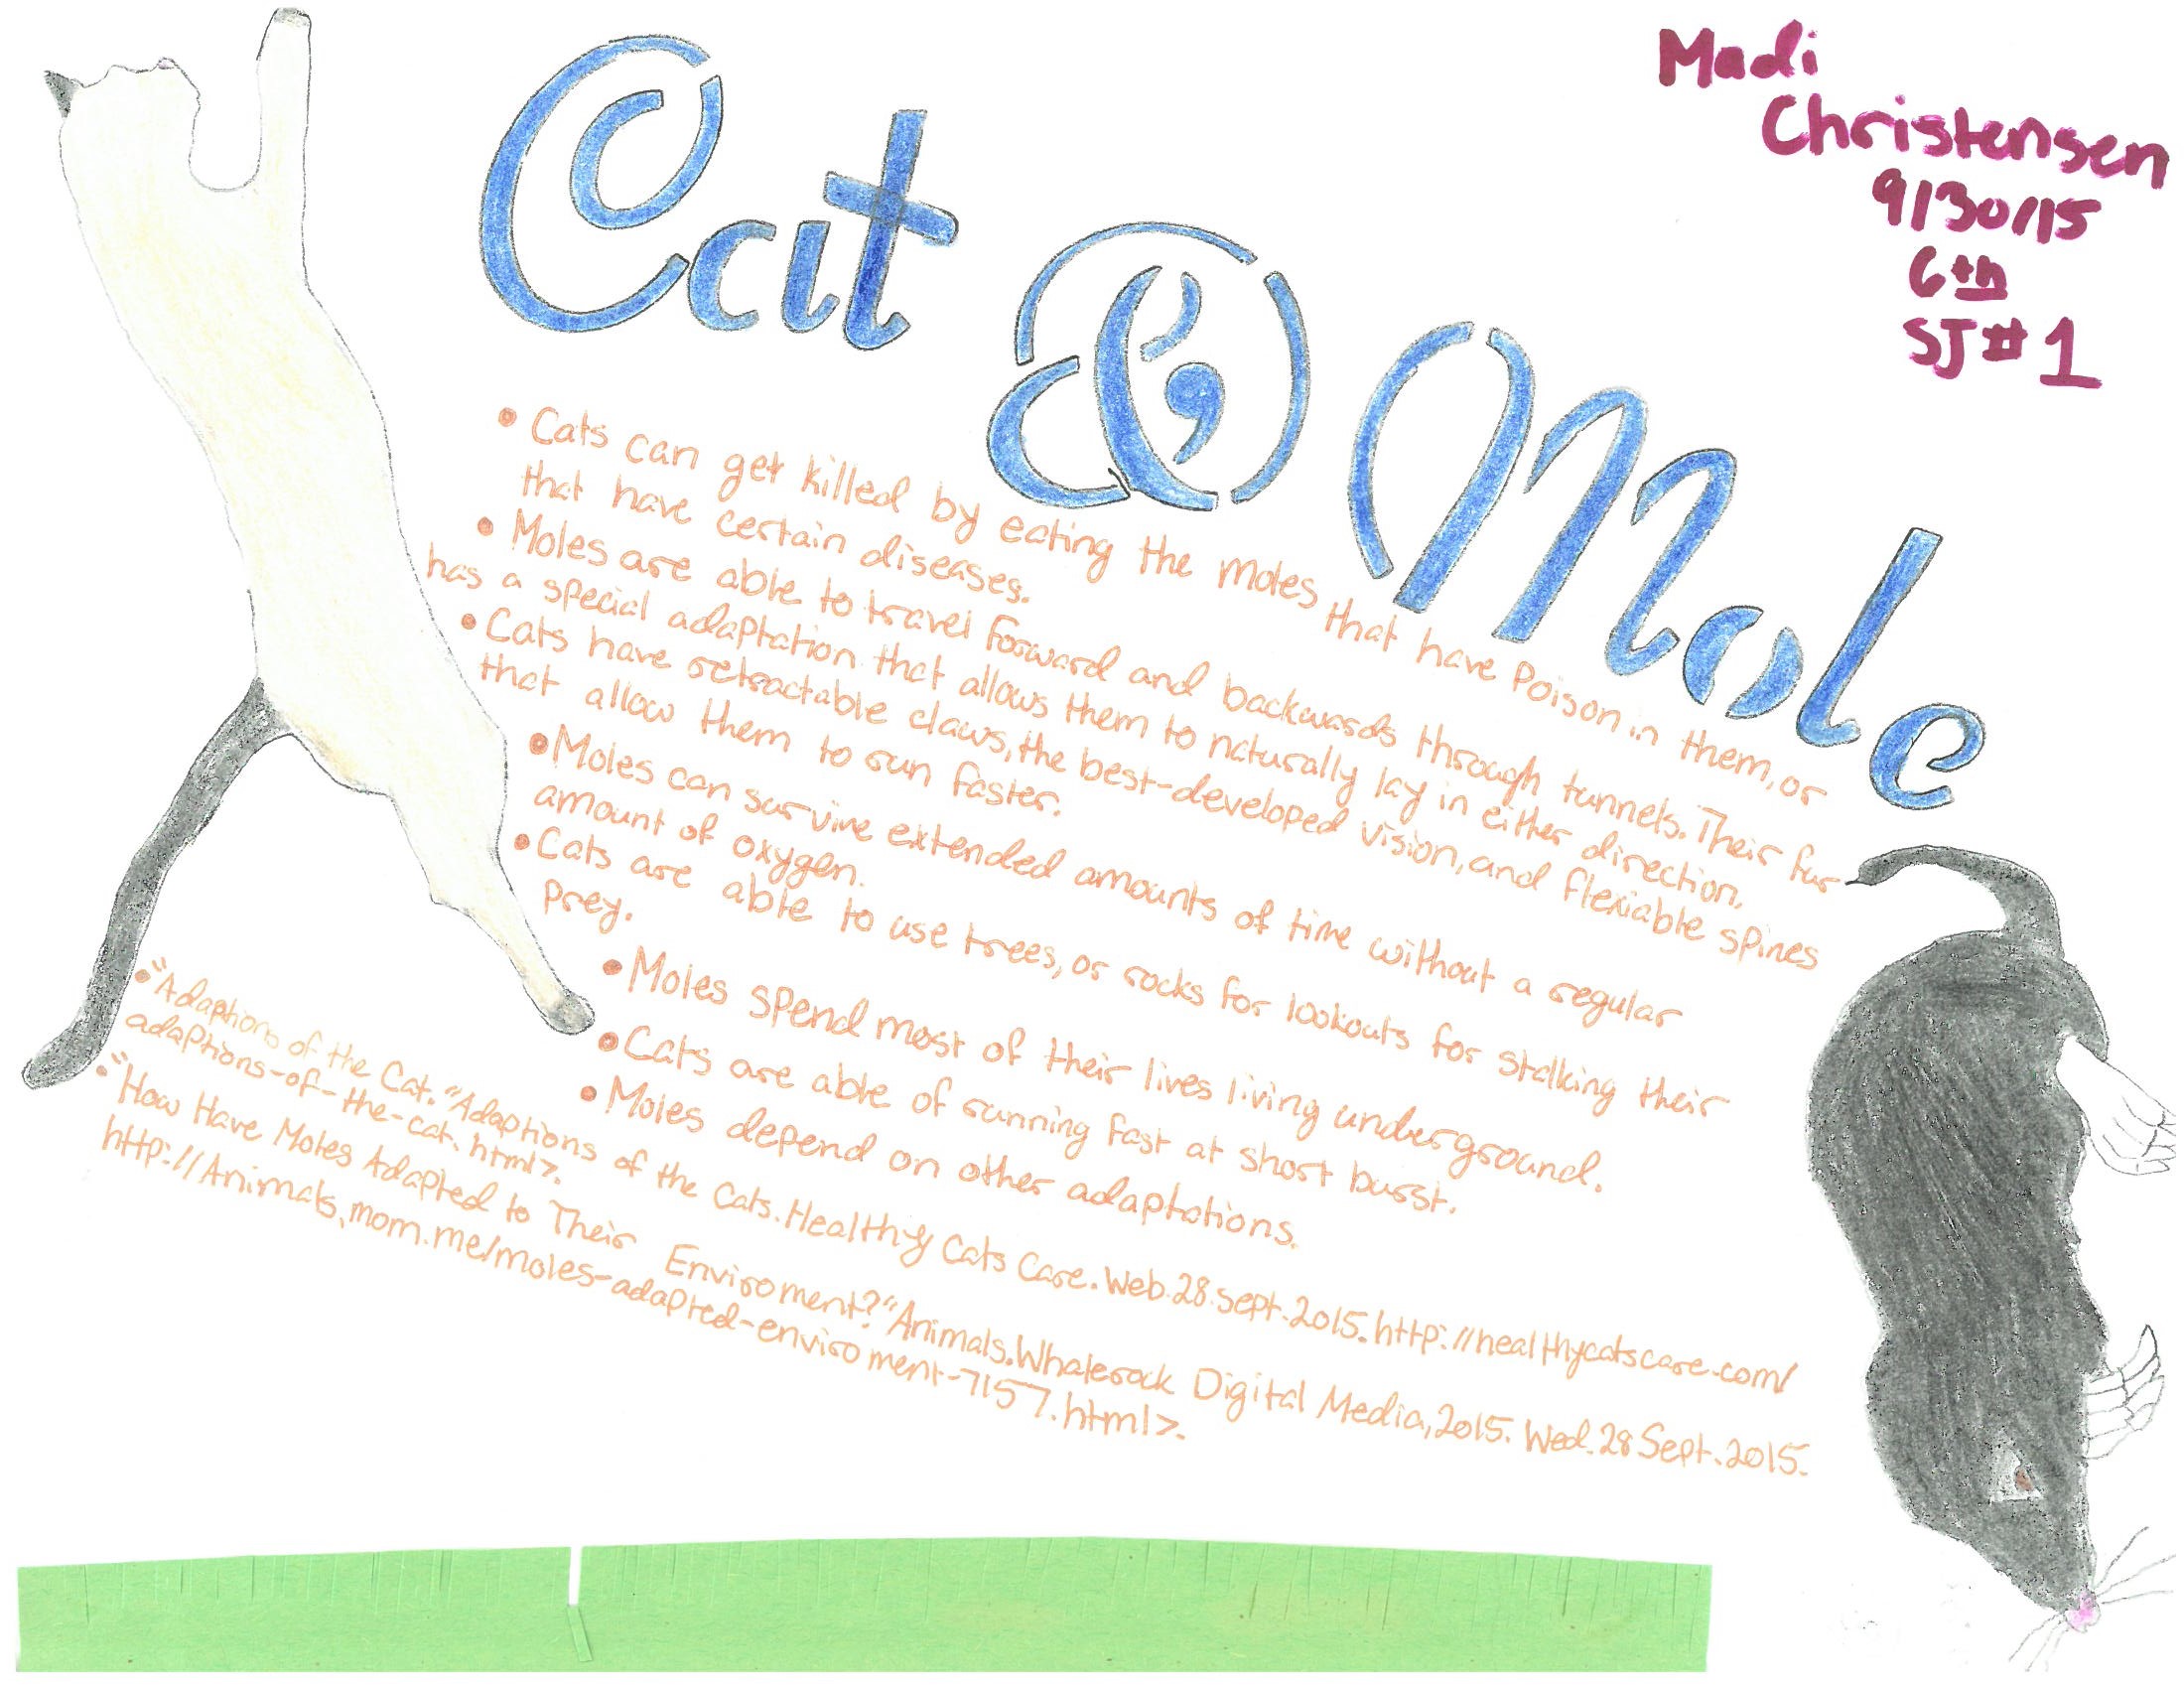 Cat & Mole
Madi
Christensen
9/30/15
6th
SJ#1
• Cats can get killed by eating the moles that have Poison in them, or
that have certain diseases.
• Moles are able to travel forward and backwards through tunnels. Their fur
has a special adaptation that allows them to naturally lay in either direction.
• Cats have retractable claws, the best-developed vision, and flexiable spines
that allow them to run faster.
• Moles can survive extended amounts of time without a regular
amount of oxygen.
• Cats are able to use trees, or rocks for lookouts for stalking their
prey.
• Moles spend most of their lives living underground.
• Cats are able of running fast at short burst.
• Moles depend on other adaptations.
• "Adaptions of the Cat. "Adaptions of the Cats. Healthy Cats Care. Web. 28. sept. 2015. http://healthycatscare.com/
adaptions-of-the-cat.html>.
• "How Have Moles Adapted to Their Enviroment?" Animals. Whalerock Digital Media, 2015. Wed. 28 Sept. 2015.
http://Animals.mom.me/moles-adapted-enviroment-7157.html>.